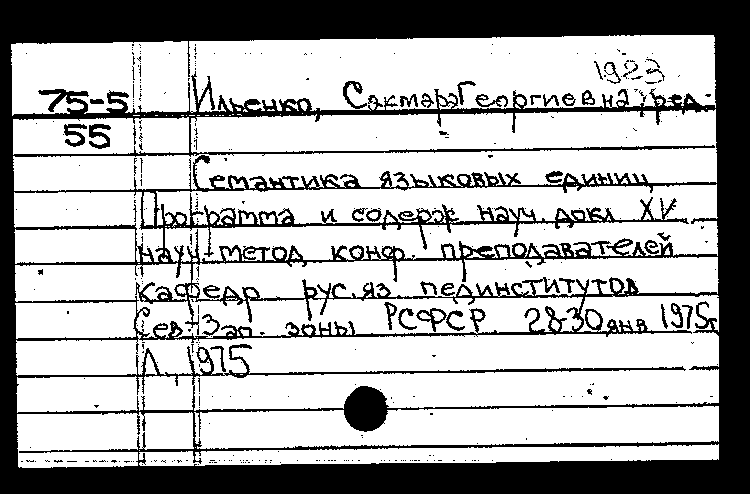 1923
75-5 Ильенко, Сактара Георгиевна, ред.
55
Семантика языковых единиц
Программа и содерж науч. докл XV
науч-метод. конф. преподавателей
кафедр рус. яз. пединститутов
Сев-Зап. зоны РСФСР. 28-30 янв 1975г
Л., 1975